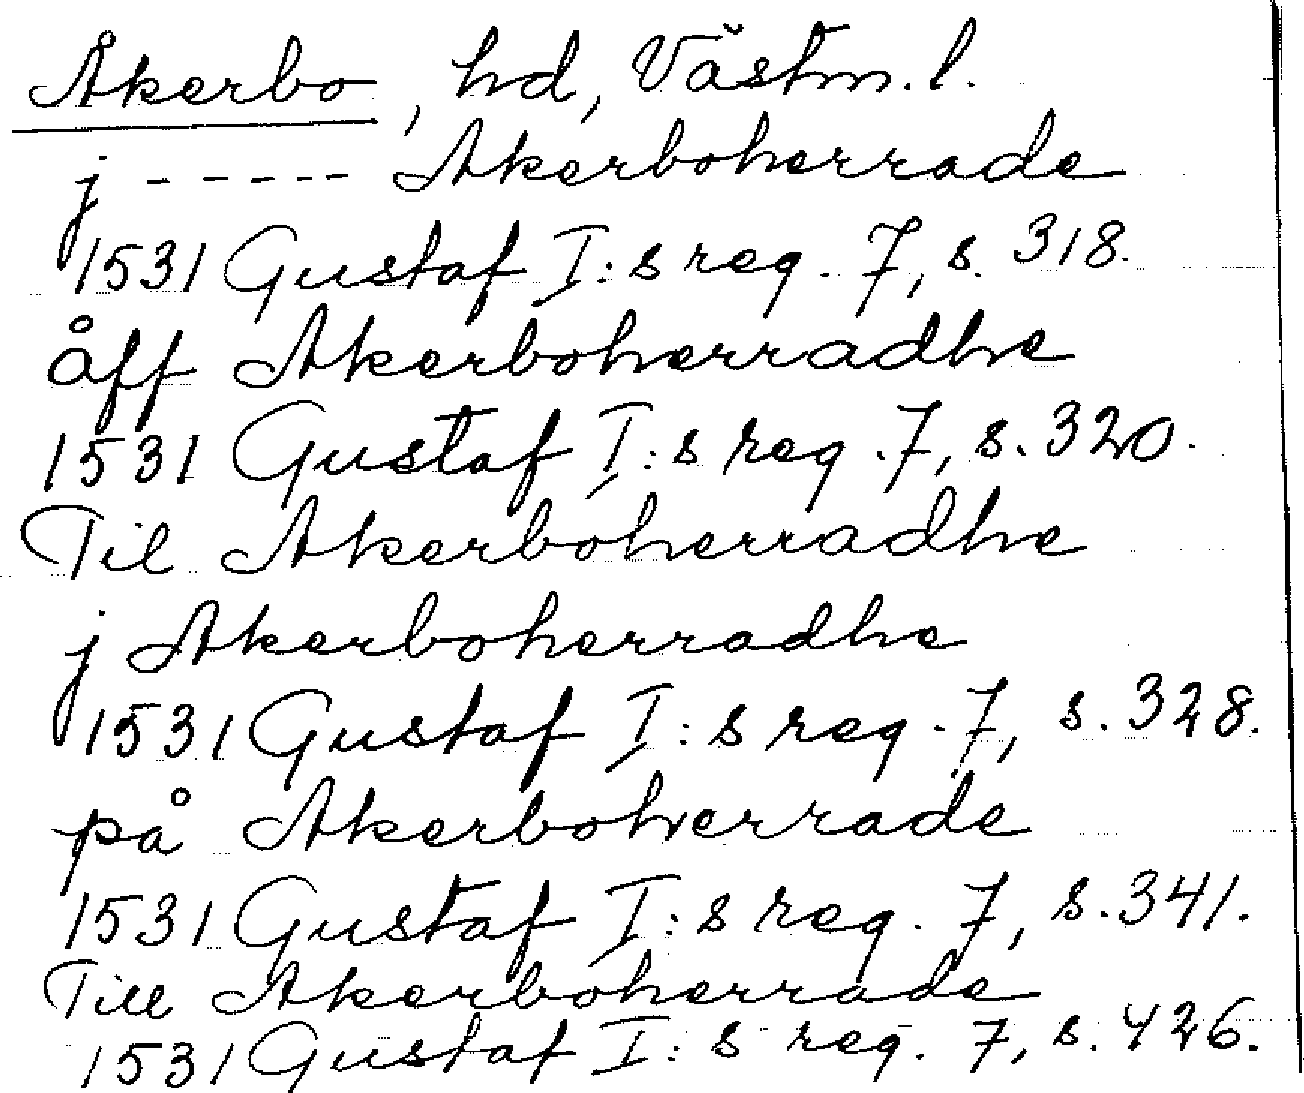 Åkerbo, hd, Västm. l.
j - - - - - - Akerboherrade
1531 Gustaf I:s reg. 7, s. 318.
åff Akerboherradhe
1531 Gustaf I:s reg. 7, s. 320.
Til Akerboherradhe
j Akerboherradhe
1531 Gustaf I:s reg. 7, s. 328.
på Akerboherrade
1531 Gustaf I:s reg. 7, s. 341.
Till Akerboherrade
1531 Gustaf I:s reg. 7, s. 426.